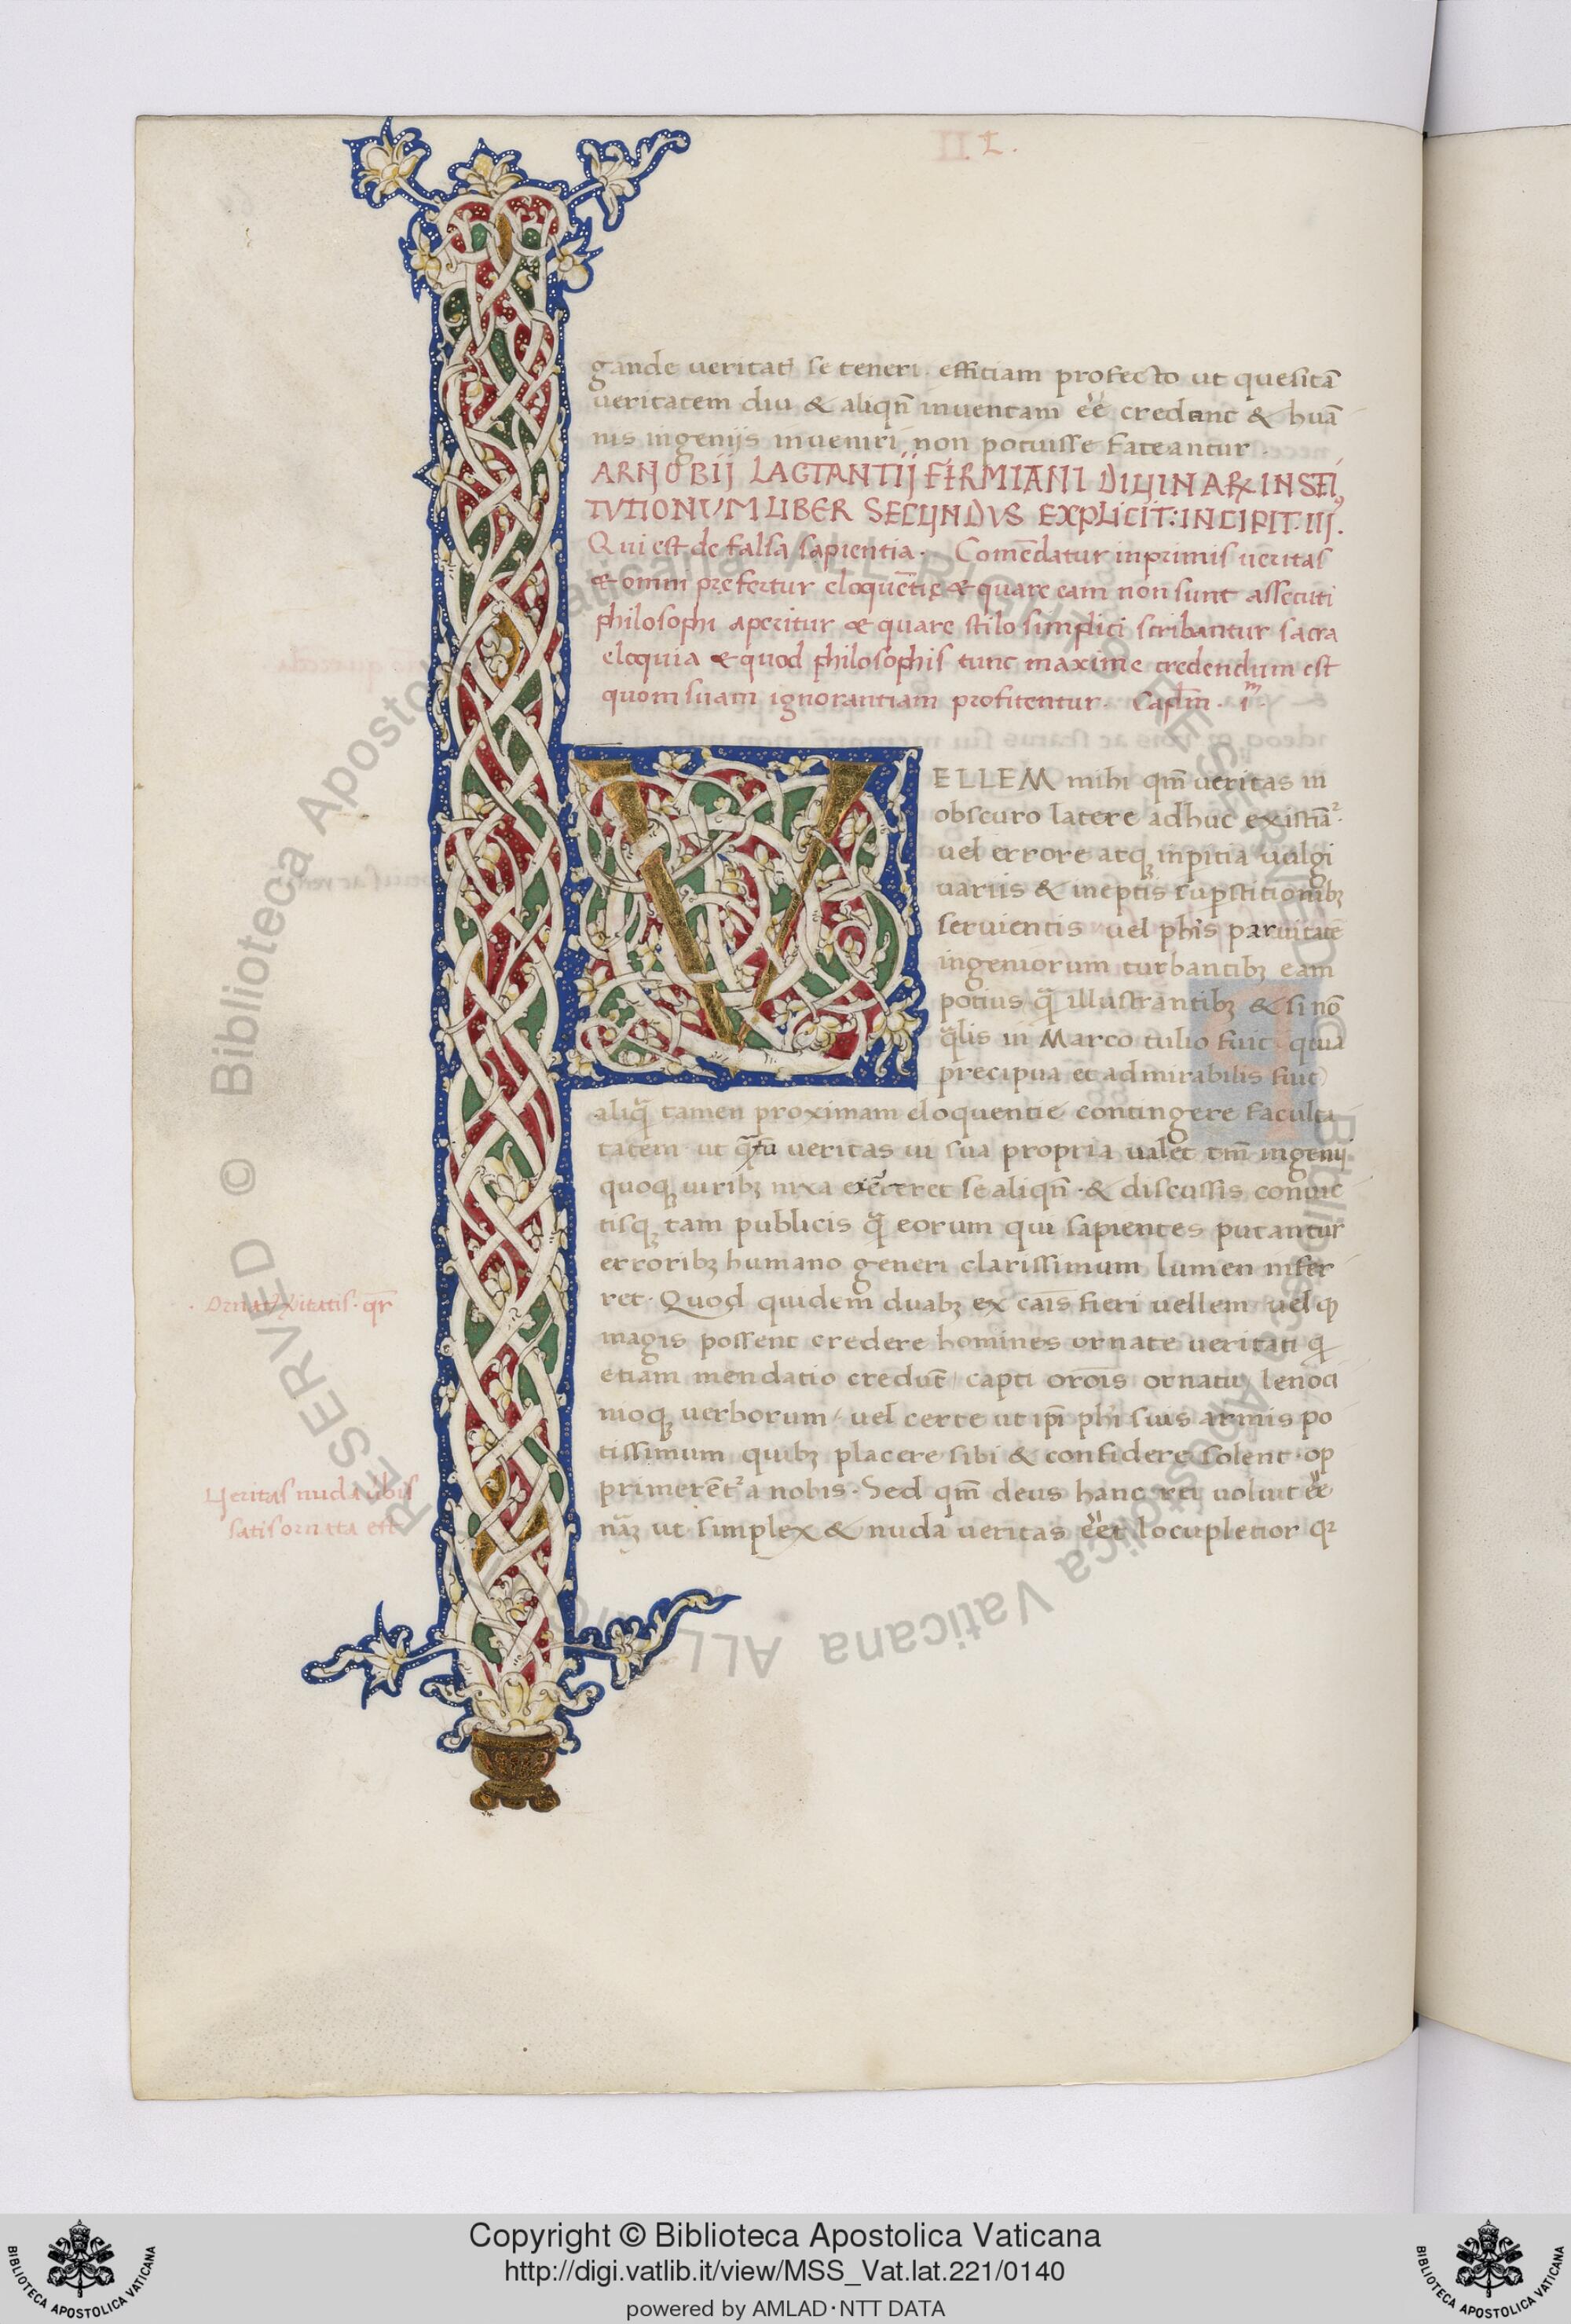 II L.
gande veritatꝭ se teneri. efficiam profecto ut quesitā
veritatem diu & aliqñ inventam eē credant & huā
nis ingenijs inveniri non potuisse fateantur.
ARNOBIJ LACTANTIJ FIRMIANI DIUINARꝜ INSTI
TUTIONUM LIBER SECUNDVS EXPLICIT: INCIPIT. IIJ.
Qui est de falsa sapientia. Comēdatur inprimis ueritas
& omni prefertur eloquētię & quare eam non sunt assecuti
philosophi aperitur & quare stilo simplici scribantur sacra
eloquia & quod philosophis tunc maxime credendum est
quom suam ignorantiam profitentur. Caplm̄. im.
V
ELLEM mihi qm̄ ueritas in
obscuro latere adhuc existiā2.
uel errore atqꝫ inpitia uulgi
uariis & ineptis supstitionibꝫ
seruientis uel phīs parvitate
ingeniorum turbantibꝫ eam
potius q̄ illustrantibꝫ & si nō
q̄lis in Marco tulio fuit. quia
precipua et admirabilis fuit
aliq̄ tamen proximam eloquentie contingere faculta
tatem. ut q̄tū ueritas ui sua propria ualet tm̄ ingenij
quoqꝫ uiribꝫ nixa exereret se aliqñ. & discussis conuic
tisqꝫ tam publicis q̄ eorum qui sapientes putantur
erroribꝫ humano generi clarissimum lumen infer
ret. Quod quidem duabꝫ ex cāis fieri uellem uel ꝙ
magis possent credere homines ornate ueritati q̄
etiam mendatio credūt capti orōis ornatu lenoci
nioqꝫ uerborum / uel certe ut ip̄i phī suis armis po
tissimum quibꝫ placere sibi & confidere solent. op
primerēt2 a nobis. Sed qm̄ deus hanc rei uoluit eē
nāꝫ ut simplex & nuda ueritas eēt locupletior qꝛ
Ornatꝰ v̄itatis. qr̄
Ueritas nuda
satis ornata est
Copyright © Biblioteca Apostolica Vaticana
http://digi.vatlib.it/view/MSS_Vat.lat.221/0140
powered by AMLAD·NTT DATA
BIBLIOTECA APOSTOLICA VATICANA
BIBLIOTECA APOSTOLICA VATICANA
RESERVED © Biblioteca Apostolica Vaticana ALL RIGHTS RESERVED © Biblioteca Apostolica Vaticana ALL